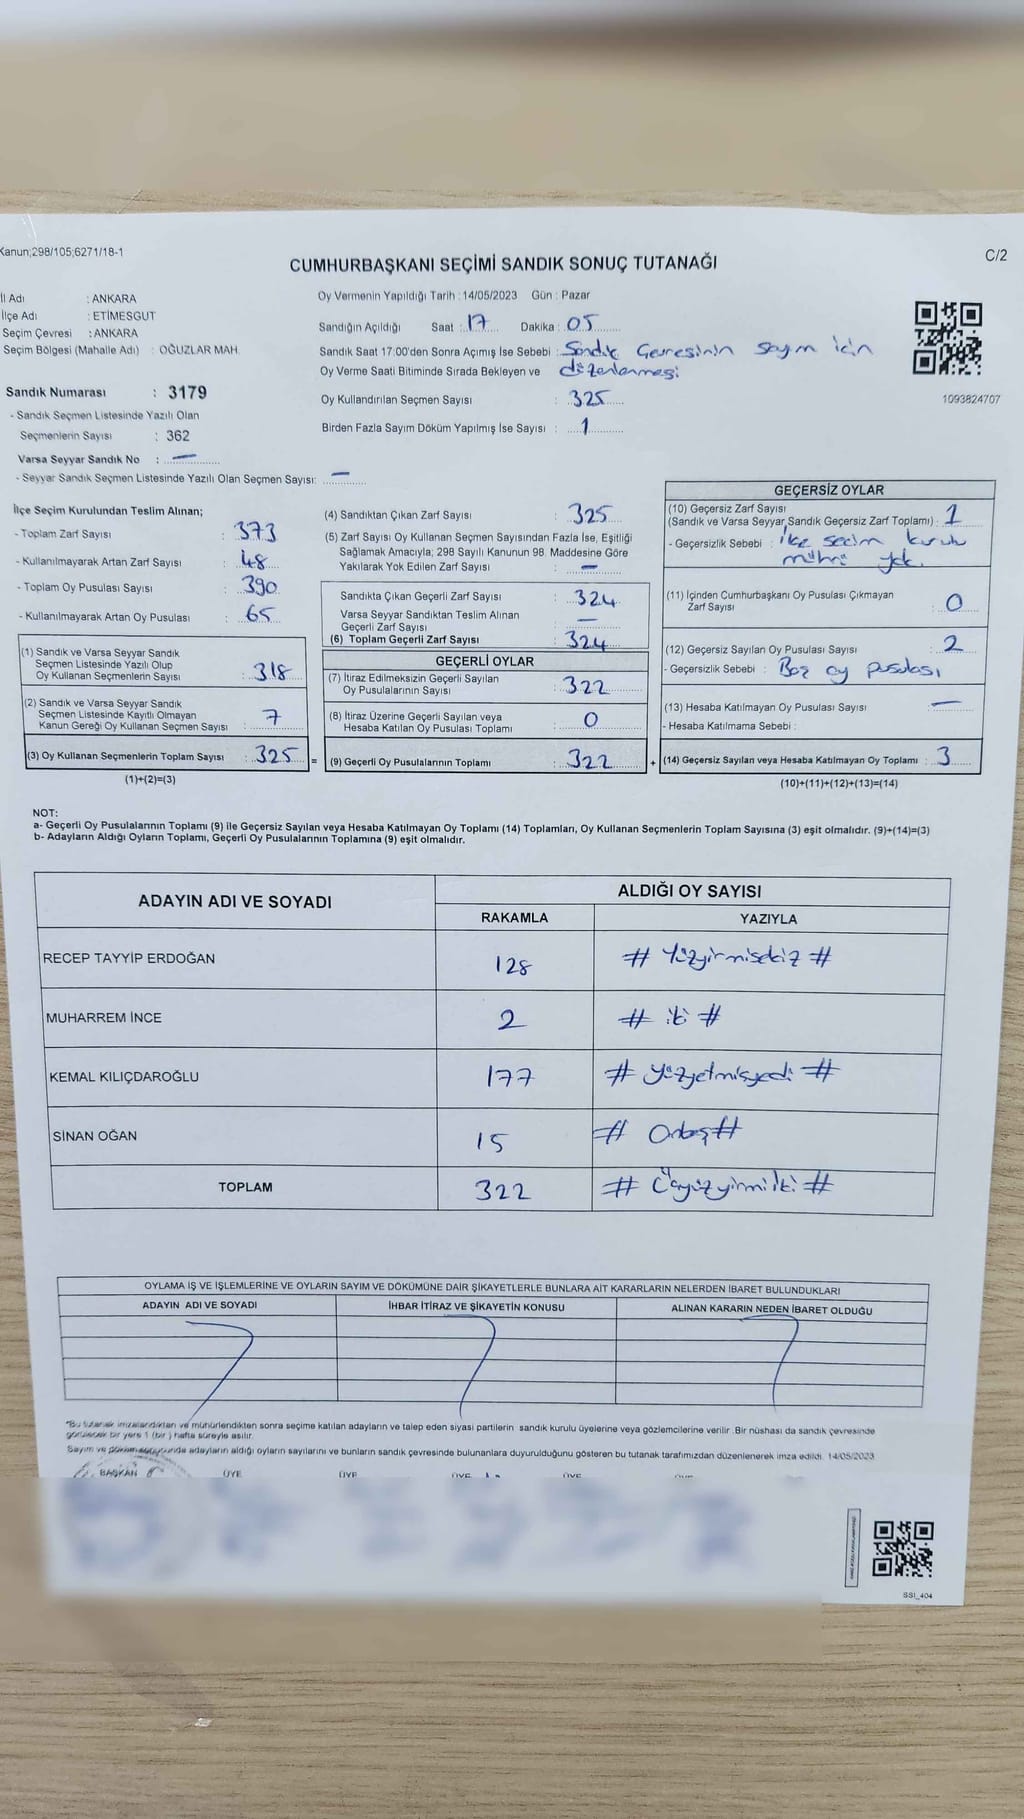 Kanun;298/105;6271/18-1
C/2
CUMHURBAŞKANI SEÇİMİ SANDIK SONUÇ TUTANAĞI
İl Adı : ANKARA
İlçe Adı : ETİMESGUT
Seçim Çevresi : ANKARA
Seçim Bölgesi (Mahalle Adı) : OĞUZLAR MAH.
Sandık Numarası : 3179
- Sandık Seçmen Listesinde Yazılı Olan
Seçmenlerin Sayısı : 362
Varsa Seyyar Sandık No : —
- Seyyar Sandık Seçmen Listesinde Yazılı Olan Seçmen Sayısı: —
Oy Vermenin Yapıldığı Tarih : 14/05/2023 Gün : Pazar
Sandığın Açıldığı Saat : 17 Dakika : 05
Sandık Saat 17:00'den Sonra Açımış İse Sebebi : Sandık Çevresinin sayım için
Oy Verme Saati Bitiminde Sırada Bekleyen ve düzenlenmesi
Oy Kullandırılan Seçmen Sayısı : 325
Birden Fazla Sayım Döküm Yapılmış İse Sayısı : 1
1093824707
İlçe Seçim Kurulundan Teslim Alınan;
- Toplam Zarf Sayısı : 373
- Kullanılmayarak Artan Zarf Sayısı : 48
- Toplam Oy Pusulası Sayısı : 390
- Kullanılmayarak Artan Oy Pusulası : 65
(1) Sandık ve Varsa Seyyar Sandık
Seçmen Listesinde Yazılı Olup
Oy Kullanan Seçmenlerin Sayısı : 318
(2) Sandık ve Varsa Seyyar Sandık
Seçmen Listesinde Kayıtlı Olmayan
Kanun Gereği Oy Kullanan Seçmen Sayısı : 7
(3) Oy Kullanan Seçmenlerin Toplam Sayısı : 325 =
(1)+(2)=(3)
(4) Sandıktan Çıkan Zarf Sayısı : 325
(5) Zarf Sayısı Oy Kullanan Seçmen Sayısından Fazla İse, Eşitliği
Sağlamak Amacıyla; 298 Sayılı Kanunun 98. Maddesine Göre
Yakılarak Yok Edilen Zarf Sayısı : —
Sandıkta Çıkan Geçerli Zarf Sayısı : 324
Varsa Seyyar Sandıktan Teslim Alınan
Geçerli Zarf Sayısı : —
(6) Toplam Geçerli Zarf Sayısı : 324
GEÇERLİ OYLAR
(7) İtiraz Edilmeksizin Geçerli Sayılan
Oy Pusulalarının Sayısı : 322
(8) İtiraz Üzerine Geçerli Sayılan veya
Hesaba Katılan Oy Pusulası Toplamı : 0
(9) Geçerli Oy Pusulalarının Toplamı : 322 +
GEÇERSİZ OYLAR
(10) Geçersiz Zarf Sayısı
(Sandık ve Varsa Seyyar Sandık Geçersiz Zarf Toplamı) : 1
- Geçersizlik Sebebi : İlçe seçim kurulu
mührü yok.
(11) İçinden Cumhurbaşkanı Oy Pusulası Çıkmayan
Zarf Sayısı : 0
(12) Geçersiz Sayılan Oy Pusulası Sayısı : 2
- Geçersizlik Sebebi : Boş oy pusulası
(13) Hesaba Katılmayan Oy Pusulası Sayısı : —
- Hesaba Katılmama Sebebi :
(14) Geçersiz Sayılan veya Hesaba Katılmayan Oy Toplamı : 3
(10)+(11)+(12)+(13)=(14)
NOT:
a- Geçerli Oy Pusulalarının Toplamı (9) ile Geçersiz Sayılan veya Hesaba Katılmayan Oy Toplamı (14) Toplamları, Oy Kullanan Seçmenlerin Toplam Sayısına (3) eşit olmalıdır. (9)+(14)=(3)
b- Adayların Aldığı Oyların Toplamı, Geçerli Oy Pusulalarının Toplamına (9) eşit olmalıdır.
ADAYIN ADI VE SOYADI
ALDIĞI OY SAYISI
RAKAMLA YAZIYLA
RECEP TAYYİP ERDOĞAN 128 # Yüzyirmisekiz #
MUHARREM İNCE 2 # iki #
KEMAL KILIÇDAROĞLU 177 # Yüzyetmişyedi #
SİNAN OĞAN 15 # Onbeş #
TOPLAM 322 # Üçyüzyirmiiki #
OYLAMA İŞ VE İŞLEMLERİNE VE OYLARIN SAYIM VE DÖKÜMÜNE DAİR ŞİKAYETLERLE BUNLARA AİT KARARLARIN NELERDEN İBARET BULUNDUKLARI
ADAYIN ADI VE SOYADI İHBAR İTİRAZ VE ŞİKAYETİN KONUSU ALINAN KARARIN NEDEN İBARET OLDUĞU
*Bu tutanak imzalandıktan ve mühürlendikten sonra seçime katılan adayların ve talep eden siyasi partilerin sandık kurulu üyelerine veya gözlemcilerine verilir .Bir nüshası da sandık çevresinde
görülecek bir yere 1 (bir ) hafta süreyle asılır.
Sayım ve dökümü sonucunda adayların aldığı oyların sayılarını ve bunların sandık çevresinde bulunanlara duyurulduğunu gösteren bu tutanak tarafımızdan düzenlenerek imza edildi. 14/05/2023
BAŞKAN ÜYE ÜYE ÜYE ÜYE
SSI_404